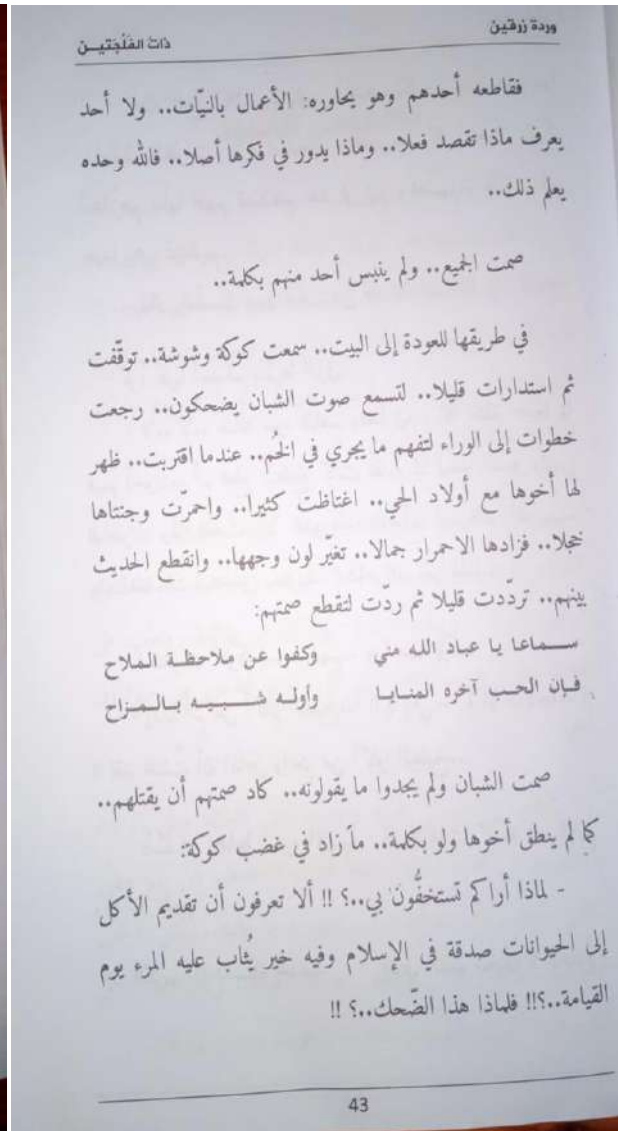 وردة زرقين
ذات الفَلْجَتيـن
فقاطعه أحدهم وهو يحاوره: الأعمال بالنيّات.. ولا أحد
يعرف ماذا تقصد فعلا.. وماذا يدور في فكرها أصلا.. فالله وحده
يعلم ذلك..
صمت الجميع.. ولم ينبس أحد منهم بكلمة..
في طريقها للعودة إلى البيت.. سمعت كوكة وشوشة.. توقّفت
ثم استدارات قليلا.. لتسمع صوت الشبان يضحكون.. رجعت
خطوات إلى الوراء لتفهم ما يجري في الخُم.. عندما اقتربت.. ظهر
لها أخوها مع أولاد الحي.. اغتاظت كثيرا.. واحمرّت وجنتاها
خجلا.. فزادها الاحمرار جمالا.. تغيّر لون وجهها.. وانقطع الحديث
بينهم.. تردّدت قليلا ثم ردّت لتقطع صمتهم:
سـماعا يا عباد الله مني وكفوا عن ملاحظـة الملاح
فـإن الحـب آخره المنـايـا وأولـه شـبـيـه بـالـمـزاح
صمت الشبان ولم يجدوا ما يقولونه.. كاد صمتهم أن يقتلهم..
كما لم ينطق أخوها ولو بكلمة.. ما زاد في غضب كوكة:
- لماذا أراكم تستخفُّونَ بي..؟ !! ألا تعرفون أن تقديم الأكل
إلى الحيوانات صدقة في الإسلام وفيه خير يُثاب عليه المرء يوم
القيامة..؟!! فلماذا هذا الضّحك..؟ !!
43